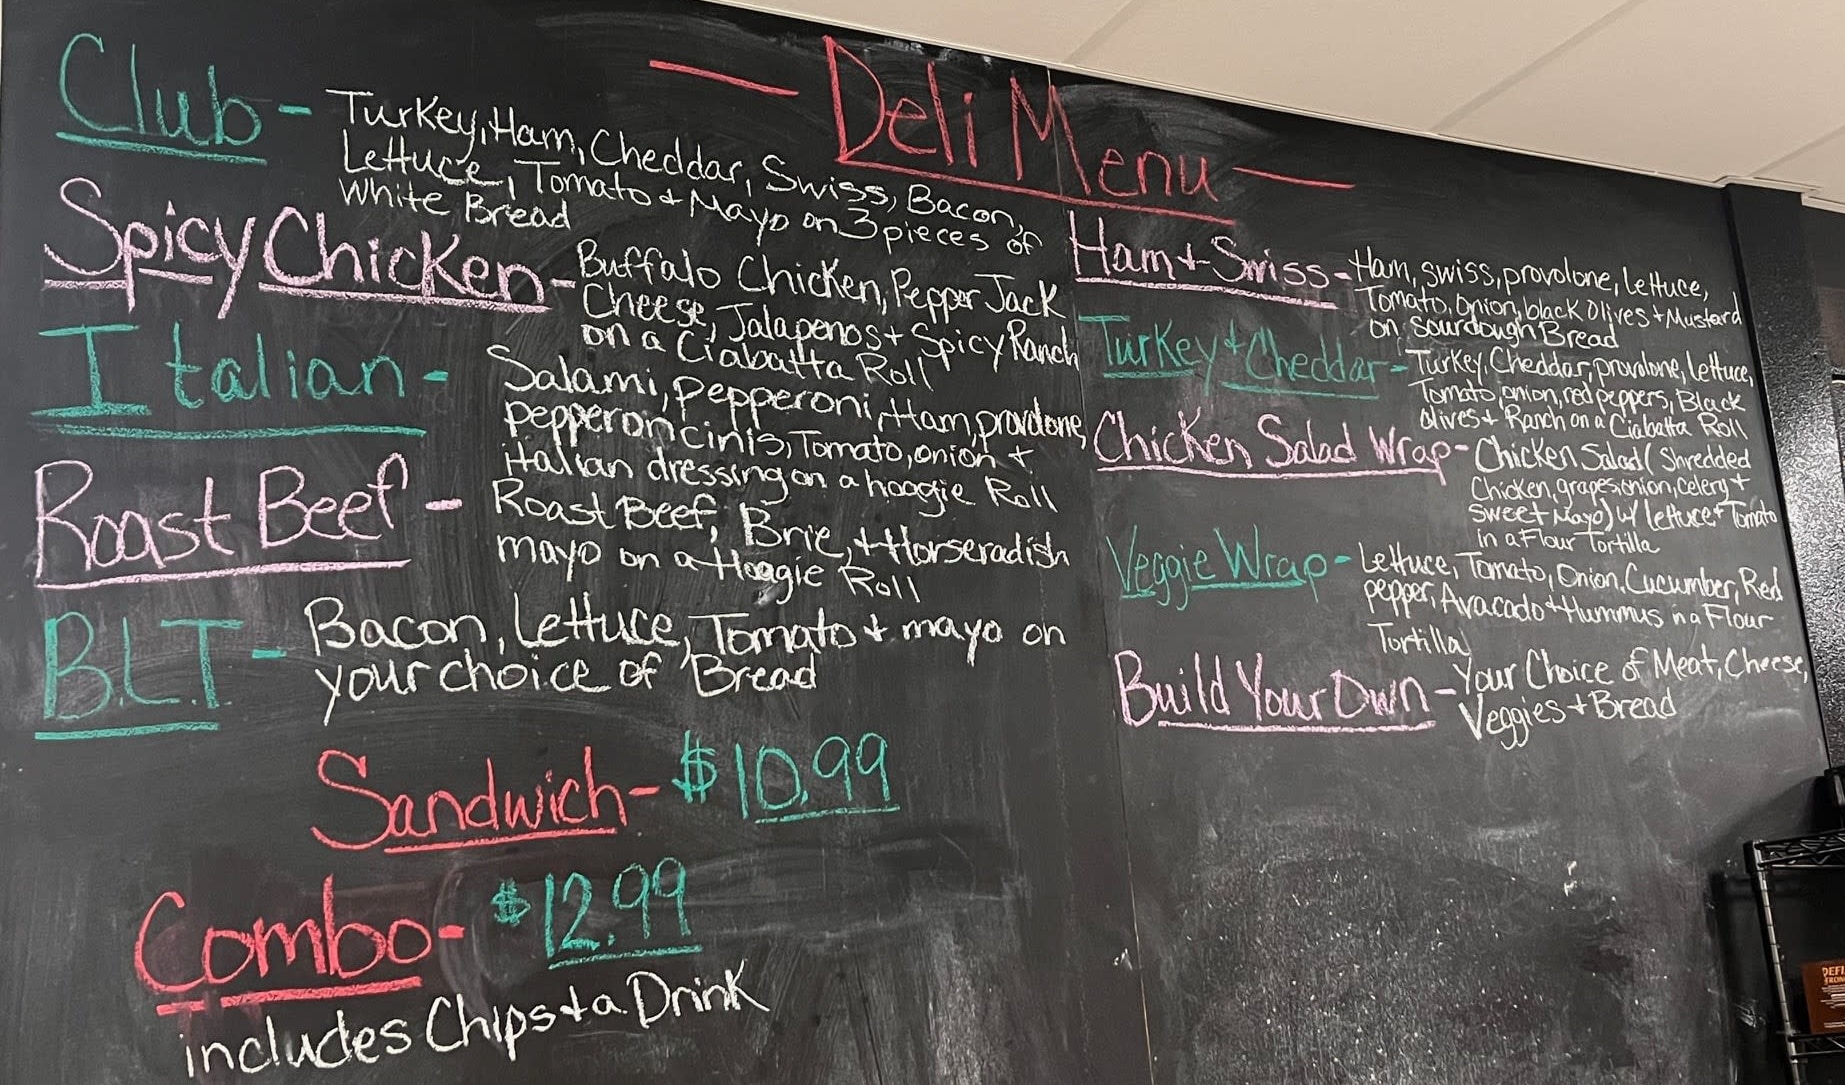 Deli Menu
Club - Turkey, Ham, Cheddar, Swiss, Bacon,
Lettuce, Tomato + Mayo on 3 pieces of
White Bread
Spicy Chicken - Buffalo Chicken, Pepper Jack
Cheese, Jalapenos + Spicy Ranch
on a Ciabatta Roll
Italian - Salami, pepperoni, Ham, provolone,
pepperoncinis, Tomato, onion +
italian dressing on a hoagie Roll
Roast Beef - Roast Beef, Brie, + Horseradish
mayo on a Hoagie Roll
B.L.T - Bacon, Lettuce, Tomato + mayo on
your choice of Bread
Sandwich - $10.99
Combo - $12.99
includes Chips + a Drink
Ham + Swiss - Ham, swiss, provolone, lettuce,
Tomato, onion, black Olives + Mustard
on sourdough Bread
Turkey + Cheddar - Turkey, Cheddar, provolone, lettuce,
Tomato, onion, red peppers, Black
olives + Ranch on a Ciabatta Roll
Chicken Salad Wrap - Chicken Salad (Shredded
Chicken, grapes, onion, celery +
sweet Mayo) w/ lettuce + Tomato
in a Flour Tortilla
Veggie Wrap - Lettuce, Tomato, Onion, Cucumber, Red
pepper, Avacado + Hummus in a Flour
Tortilla
Build Your Own - Your Choice of Meat, Cheese,
Veggies + Bread